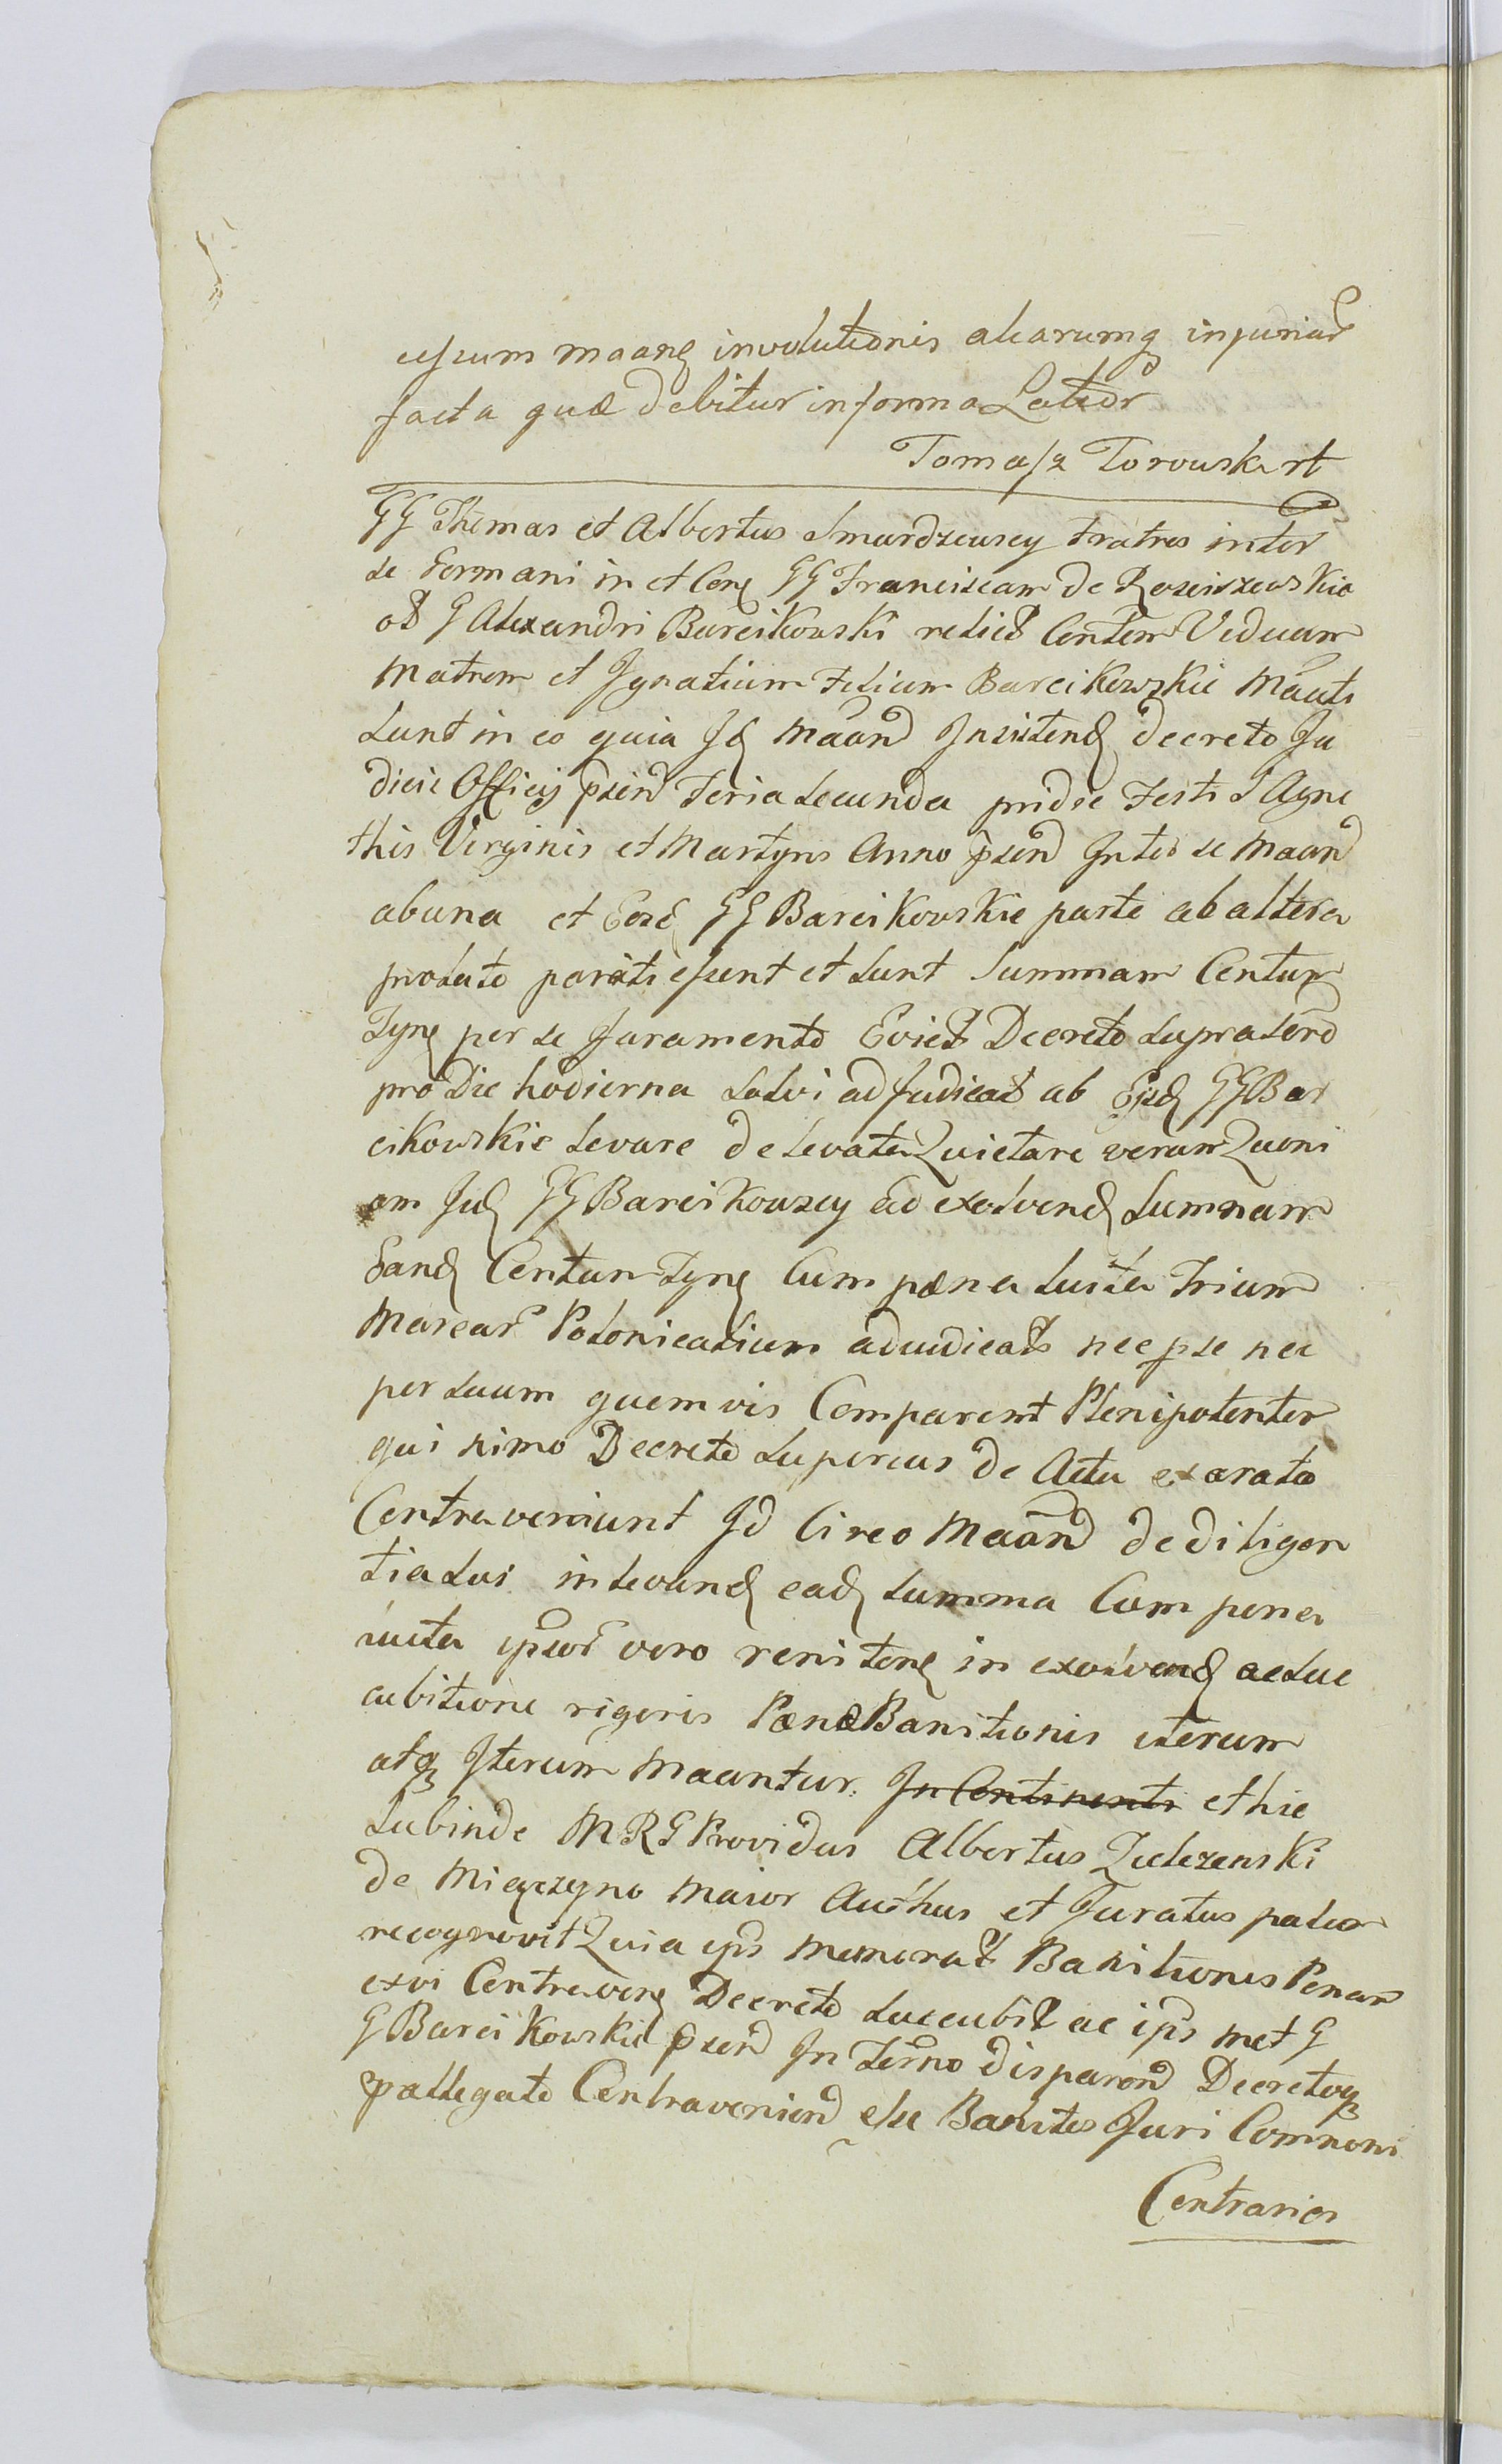 maanq involutionis aliarumq injuriar
facta quæ debitur in forma Latior
Tomasz Torouski rt
GG Thomas et Albertus Smardzewscy Fratres inter
se Germani in et Conq GG Franciscam de Rosciszewskie
ol G Alexandri Barcikowski relict Consortem Viduam
Matrem et Ignatium Filium Barcikowskie Maati
sunt in eo quia Id Maand Insistend decreto Ju
dicii Officij psend Feria Secunda pridie Festi S Agne
this Virginis et Martyris Anno psend Inter se Maand
ab una et Eosd GG Barcikowskie parte ab altera
prolato pariti essent et sunt Summam Centum
Tynq per se Juramento Evict Decreto suprascrd
pro Die hodierna solvi adjudicat ab Ijsd GG Bar
cikowskie levare de levata Quietare verum Quoni
am Jid GG Barcikowscy ad exolvend Summam
eand Centum Tynq Cum pæna luita Trium
Marcar Polonicalium adiudicats nec p se nec
per suum quemvis Comparent Plenipotentem
qui nimo Decreto superius de Actu exarato
Contraveniunt Id Circo Maand de diligen
tia sui in levand ead summa Cum pena
iucta ipsor vero reniteng in exolvend ac suc
cubitione rigoris Pænæ Banitionis iterum
atq Iterum Maantur. In Continenti et hic
Subinde MRG Providus Albertus Zuleszenski
de Miączyno Maior Authus et Juratus palam
recognovit Quia ips memorat Banitionis Penam
ex vi Contraveng Decreto succubit ac ips met G
G Barcikowskie psend In Termo disparend Decretoq
pallegato Contraveniend esse Banitos Juri Communi
Contrarios